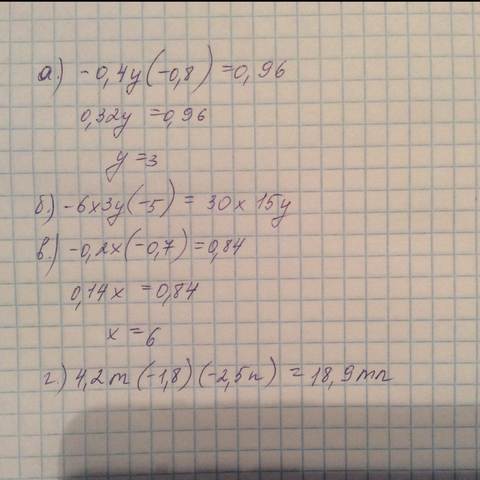 а.) -0,4y(-0,8) =0,96
0,32y =0,96
y =3
б.) -6x3y(-5) = 30x 15y
в.) -0,2x(-0,7)=0,84
0,14x =0,84
x =6
г.) 4,2m(-1,8)(-2,5n) =18,9mn